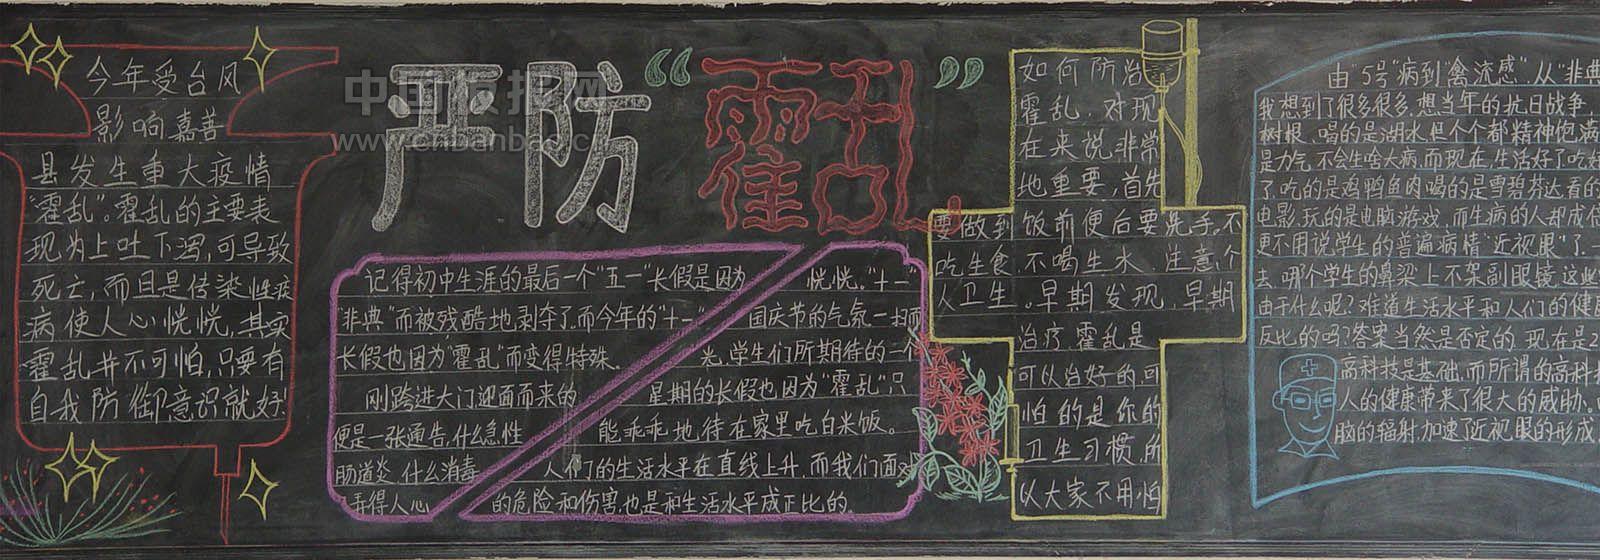 今年受台风
影响,嘉善
县发生重大疫情
“霍乱”。霍乱的主要表
现为上吐下泻,可导致
死亡,而且是传染性疾
病使人心恍恍,其实
霍乱并不可怕,只要有
自我防御意识就好!
中国板报网
www.chbanbao.cn
严防“霍乱”
记得初中生涯的最后一个“五一”长假是因为
“非典”而被残酷地剥夺了。而今年的“十一”
长假也因为“霍乱”而变得特殊。
刚跨进大门迎面而来的
便是一张通告,什么急性
肠道炎,什么消毒
弄得人心
恍恍。“十一”
国庆节的气氛一扫而
光,学生们所期待的一个
星期的长假也因为“霍乱”只
能乖乖地待在家里吃白米饭。
人们的生活水平在直线上升,而我们面对
的危险和伤害也是和生活水平成正比的。
如何防治
霍乱,对现
在来说非常
地重要,首先
要做到饭前便后要洗手。不
吃生食,不喝生水,注意个
人卫生。早期发现,早期
治疗,霍乱是
可以治好的,可
怕的是你的
卫生习惯,所
以大家不用怕
由“5号”病到“禽流感”从“非典
我想到了很多很多.想当年的抗日战争,
树根、喝的是湖水但个个都精神饱满
是力气,不会生啥大病,而现在,生活好了吃好
了,吃的是鸡鸭鱼肉喝的是雪碧芬达看的
电影,玩的是电脑游戏,而生病的人却成倍
更不用说学生的普遍病情“近视眼”了.
去,哪个学生的鼻梁上不架副眼镜.这些
由于什么呢?难道生活水平和人们的健康
反比的吗?答案当然是否定的.现在是2
高科技是基础,而所谓的高科技
人的健康带来了很大的威胁。
脑的辐射,加速了近视眼的形成,